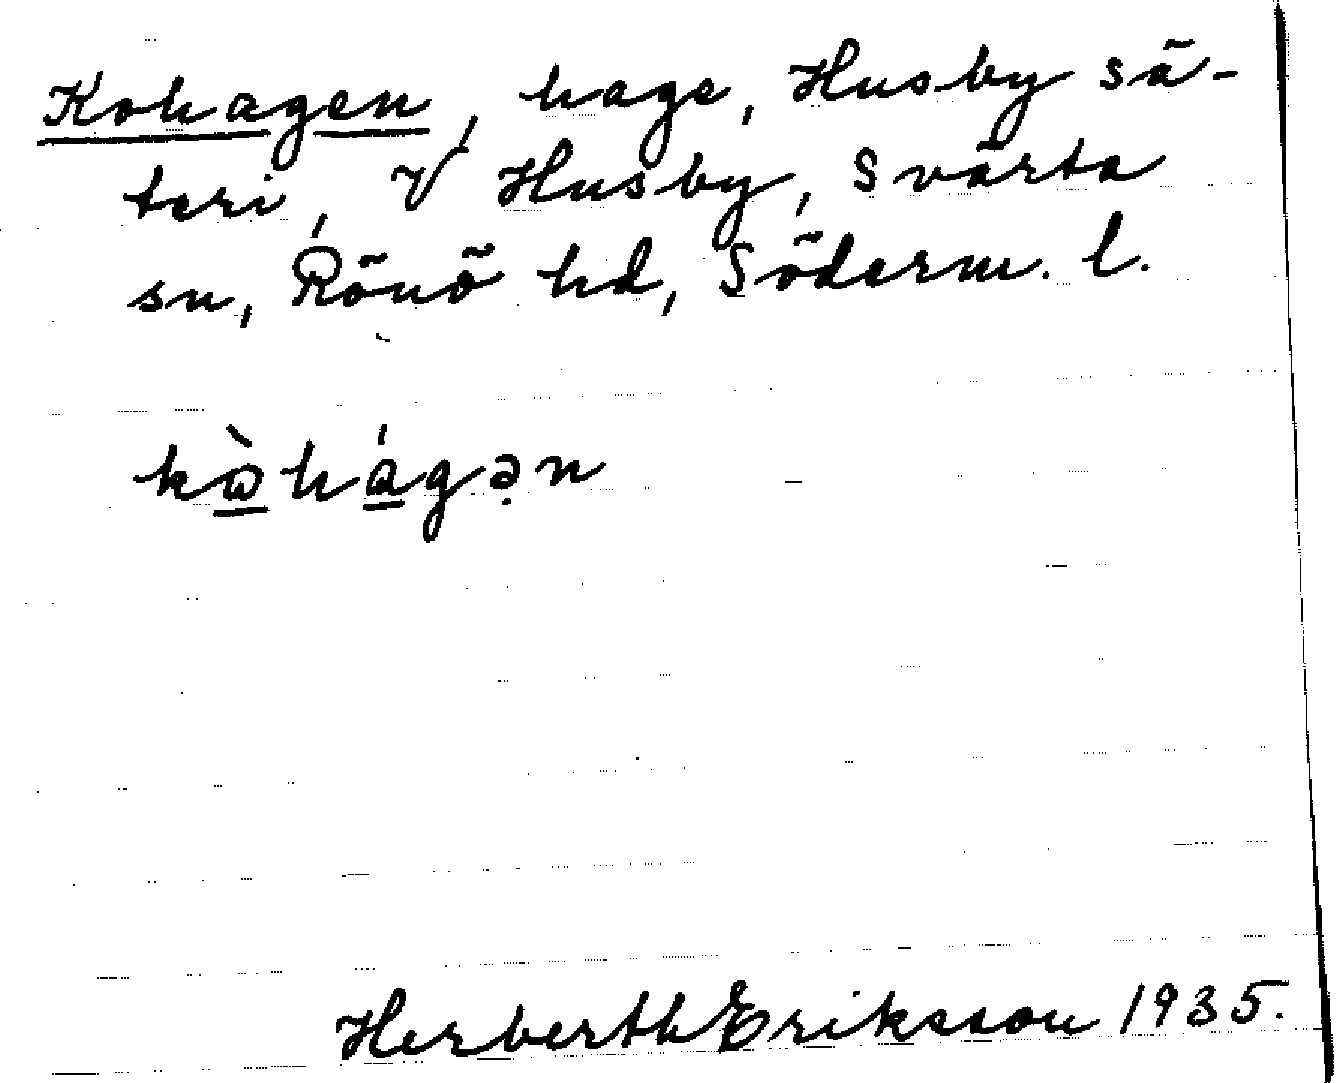 Kohagen, hage, Husby sä-
teri, V Husby, Svärta
sn, Rönö hd, Söderm. l.
kò̱há̱gə̣n
Herberth Eriksson 1935.